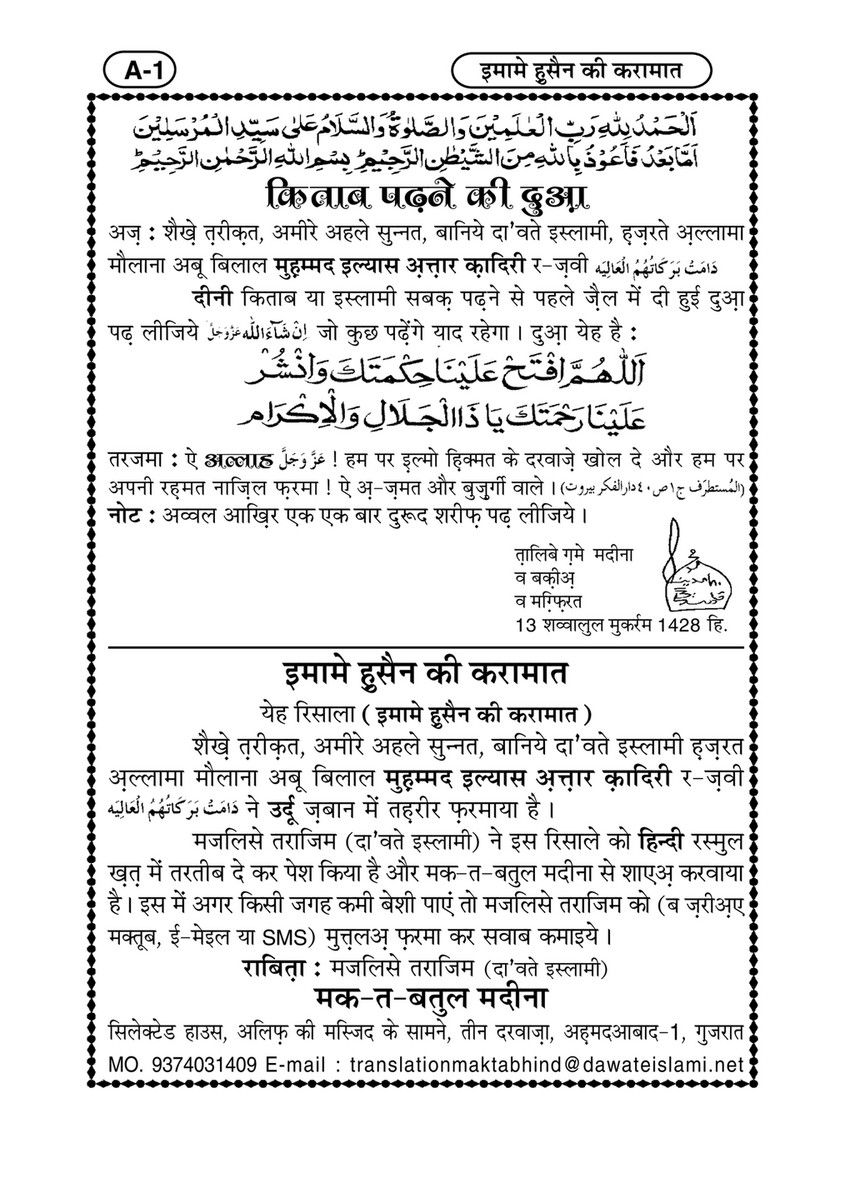 A-1
इमामे हुसैन की करामात
اَلْحَمْدُ لِلّٰهِ رَبِّ الْعٰلَمِيْنَ وَالصَّلٰوةُ وَالسَّلَامُ عَلٰى سَيِّدِ الْمُرْسَلِيْنَ
اَمَّا بَعْدُ فَاَعُوْذُ بِاللّٰهِ مِنَ الشَّيْطٰنِ الرَّجِيْمِ ؕ بِسْمِ اللّٰهِ الرَّحْمٰنِ الرَّحِيْمِ ؕ
किताब पढ़ने की दुआ़
अज़ : शैख़े त़रीक़त, अमीरे अहले सुन्नत, बानिये दा'वते इस्लामी, ह़ज़रते अ़ल्लामा
मौलाना अबू बिलाल मुह़म्मद इल्यास अ़त्तार क़ादिरी र-ज़वी دَامَتْ بَرَكَاتُهُمُ الْعَالِيَه
दीनी किताब या इस्लामी सबक़ पढ़ने से पहले ज़ैल में दी हुई दुआ़
पढ़ लीजिये اِنْ شَآءَاللّٰه عَزَّوَجَلَّ जो कुछ पढ़ेंगे याद रहेगा । दुआ़ येह है :
اَللّٰهُمَّ افْتَحْ عَلَيْنَا حِكْمَتَكَ وَانْشُرْ
عَلَيْنَا رَحْمَتَكَ يَا ذَا الْجَلَالِ وَالْاِكْرَام
तरजमा : ऐ अल्लाह عَزَّوَجَلَّ ! हम पर इ़ल्मो ह़िक्मत के दरवाज़े खोल दे और हम पर
अपनी रह़मत नाज़िल फ़रमा ! ऐ अ़-ज़मत और बुज़ुर्गी वाले । (المُستطرَف ج١ص٤٠دارالفكربيروت)
नोट : अव्वल आख़िर एक एक बार दुरूद शरीफ़ पढ़ लीजिये ।
त़ालिबे ग़मे मदीना
व बक़ीअ़
व मग़्फ़िरत
13 शव्वालुल मुकर्रम 1428 हि.
इमामे हुसैन की करामात
येह रिसाला ( इमामे हुसैन की करामात )
शैख़े त़रीक़त, अमीरे अहले सुन्नत, बानिये दा'वते इस्लामी ह़ज़रत
अ़ल्लामा मौलाना अबू बिलाल मुह़म्मद इल्यास अ़त्तार क़ादिरी र-ज़वी
دَامَتْ بَرَكَاتُهُمُ الْعَالِيَه ने उर्दू ज़बान में तह़रीर फ़रमाया है ।
मजलिसे तराजिम (दा'वते इस्लामी) ने इस रिसाले को हिन्दी रस्मुल
ख़त़ में तरतीब दे कर पेश किया है और मक-त-बतुल मदीना से शाएअ़ करवाया
है । इस में अगर किसी जगह कमी बेशी पाएं तो मजलिसे तराजिम को (ब ज़रीअ़ए
मक्तूब, ई-मेइल या SMS) मुत्त़लअ़ फ़रमा कर सवाब कमाइये ।
राबित़ा : मजलिसे तराजिम (दा'वते इस्लामी)
मक-त-बतुल मदीना
सिलेक्टेड हाउस, अलिफ़ की मस्जिद के सामने, तीन दरवाज़ा, अह़मदआबाद-1, गुजरात
MO. 9374031409 E-mail : translationmaktabhind@dawateislami.net